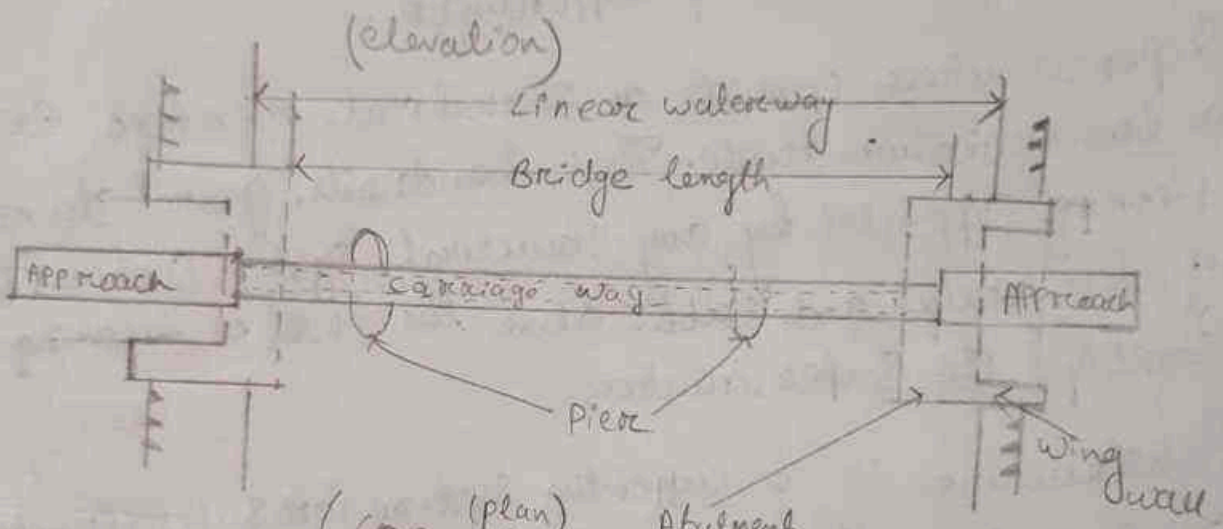 (elevation)
Linear waterway
Bridge length
Approach
carriage way
Approach
Pier
Wing
wall
(plan)
Abutment